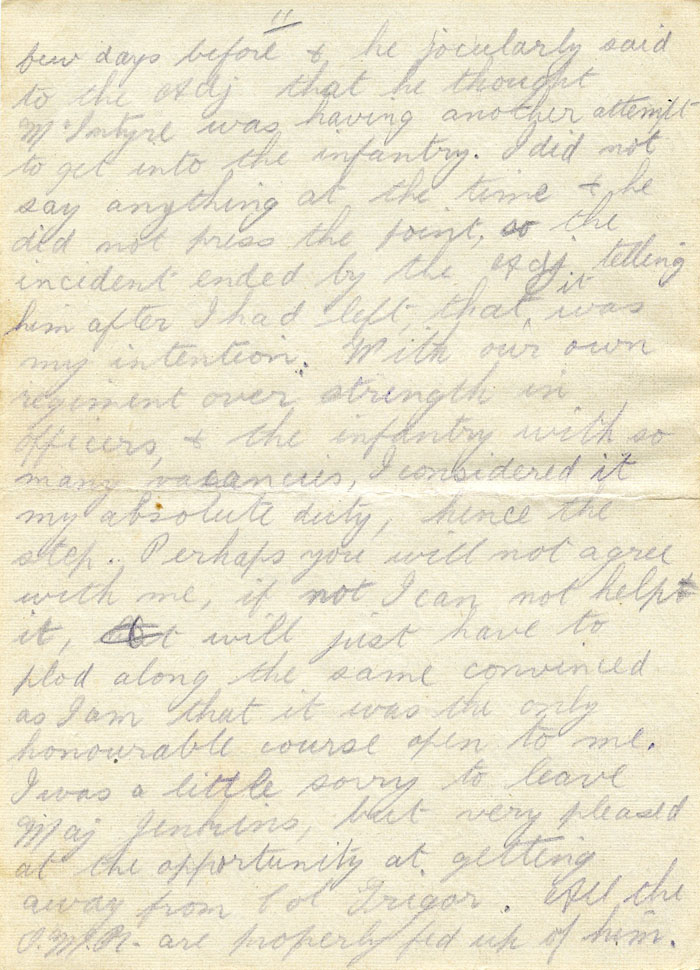 11
few days before & he jocularly said
to the Adj that he thought
McIntyre was having another attempt
to get into the infantry. I did not
say anything at the time & he
did not press the point, so the
incident ended by the Adj telling
him after I had left, that it was
my intention. With our own
regiment over strength in
officers, & the infantry with so
many vacancies, I considered it
my absolute duty, hence the
step. Perhaps you will not agree
with me, if not I can not help
it, will just have to
plod along the same convinced
as I am that it was the only
honourable course open to me.
I was a little sorry to leave
Maj Jenkins, but very pleased
at the opportunity at getting
away from Col Grigor. All the
are properly fed up of him.